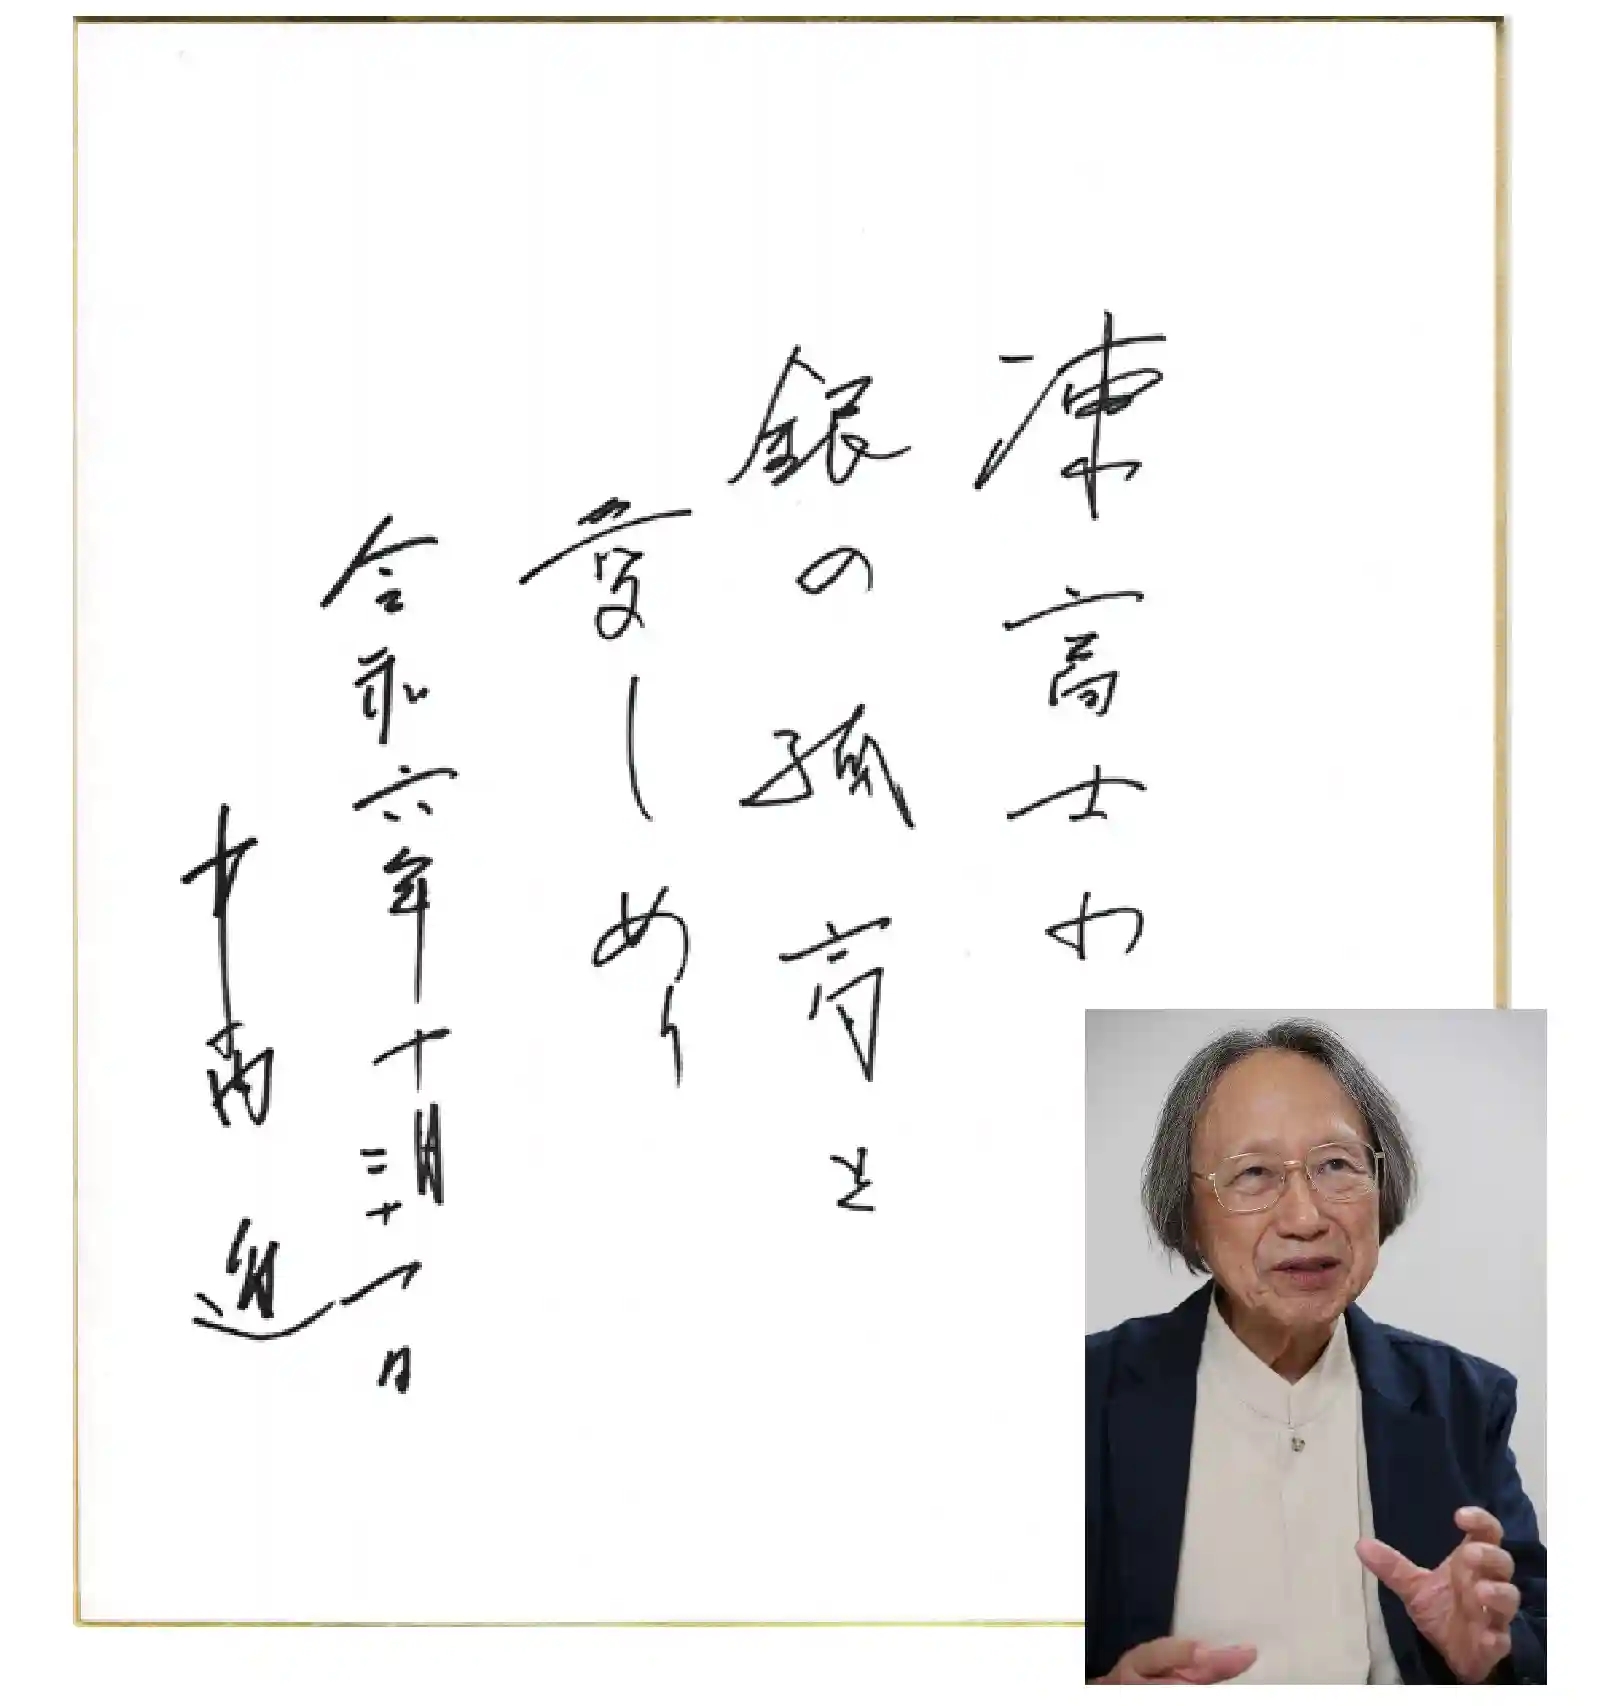 凍富士や
銀の孤高を
愛しめり
令和六年十月三十一日
中西 進